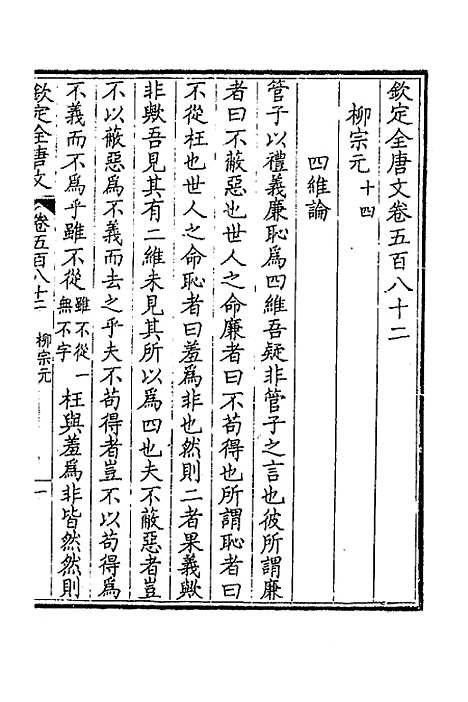 欽定全唐文卷五百八十二
柳宗元 十四
四維論
管子以禮義廉恥爲四維吾疑非管子之言也彼所謂廉
者曰不蔽惡也世人之命廉者曰不苟得也所謂恥者曰
不從枉也世人之命恥者曰羞爲非也然則二者果義歟
非歟吾見其有二維未見其所以爲四也夫不蔽惡者豈
不以蔽惡爲不義而去之乎夫不苟得者豈不以苟得爲
不義而不爲乎雖不從 雖不從一無不字 枉與羞爲非皆然然則
欽定全唐文 卷五百八十二 柳宗元 一